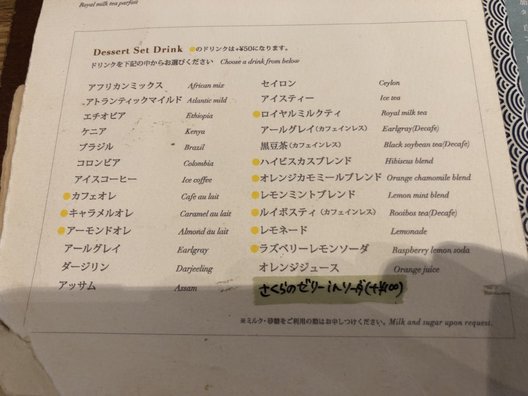 Royal milk tea parfait
Dessert Set Drink ●のドリンクは+¥50になります。
ドリンクを下記の中からお選びください Choose a drink from below
アフリカンミックス African mix
アトランティックマイルド Atlantic mild
エチオピア Ethiopia
ケニア Kenya
ブラジル Brazil
コロンビア Colombia
アイスコーヒー Ice coffee
カフェオレ Cafe au lait
キャラメルオレ Caramel au lait
アーモンドオレ Almond au lait
アールグレイ Earlgray
ダージリン Darjeeling
アッサム Assam
セイロン Ceylon
アイスティー Ice tea
ロイヤルミルクティ Royal milk tea
アールグレイ(カフェインレス) Earlgray(Decafe)
黒豆茶(カフェインレス) Black soybean tea(Decafe)
ハイビスカスブレンド Hibiscus blend
オレンジカモミールブレンド Orange chamomile blend
レモンミントブレンド Lemon mint blend
ルイボスティ(カフェインレス) Rooibos tea(Decafe)
レモネード Lemonade
ラズベリーレモンソーダ Raspberry lemon soda
オレンジジュース Orange juice
さくらのゼリーinソーダ(+¥100)
※ミルク・砂糖をご利用の際はお申しつけください。Milk and sugar upon request.